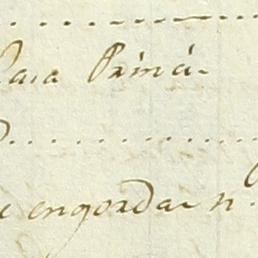 Para Princi-
e engordar n